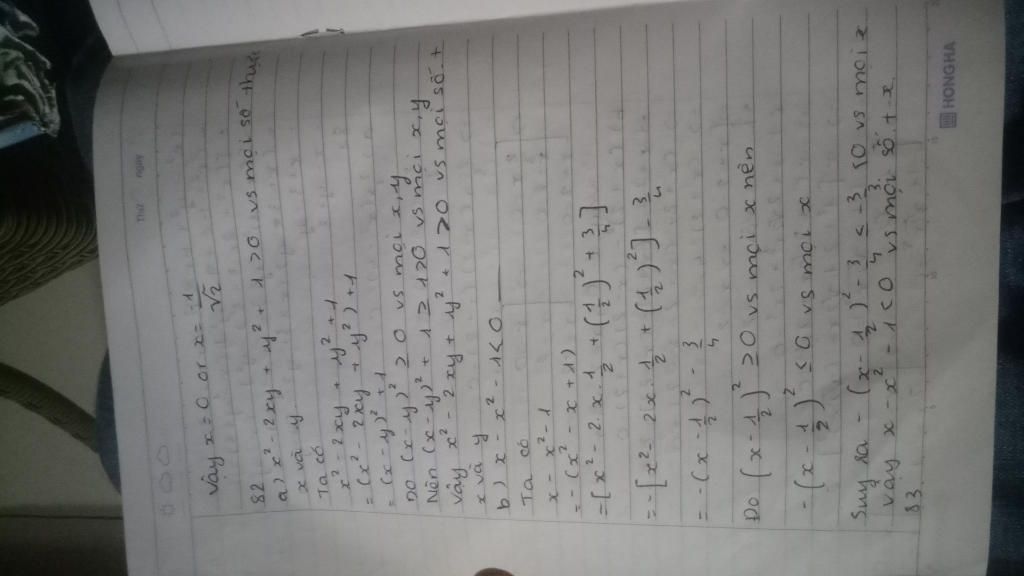 Thứ
ngày
Vậy x = 0 or x = 1/√2
82
a) x² - 2xy + y² + 1 > 0 vs mọi số thực
x và y
Ta có
x² - 2xy + y² + 1
= (x² - 2xy + y²) + 1
= (x - y)² + 1
Do (x - y)² ≥ 0 vs mọi x, y
Nên (x - y)² + 1 ≥ 1 > 0 vs mọi x, y
Vậy x² - 2xy + y² + 1 > 0 vs mọi số t
x và y
b) x - x² - 1 < 0
Ta có
x - x² - 1
= - (x² - x + 1)
= - [x² - 2 . x . 1/2 + (1/2)² + 3/4]
= - [x² - 2x . 1/2 + (1/2)²] - 3/4
= - (x - 1/2)² - 3/4
Do (x - 1/2)² ≥ 0 vs mọi x nên
- (x - 1/2)² ≤ 0 vs mọi x
Suy ra - (x - 1/2)² - 3/4 ≤ - 3/4 < 0 vs mọi x
Vậy x - x² - 1 < 0 vs mọi số t x
83
HONGHA